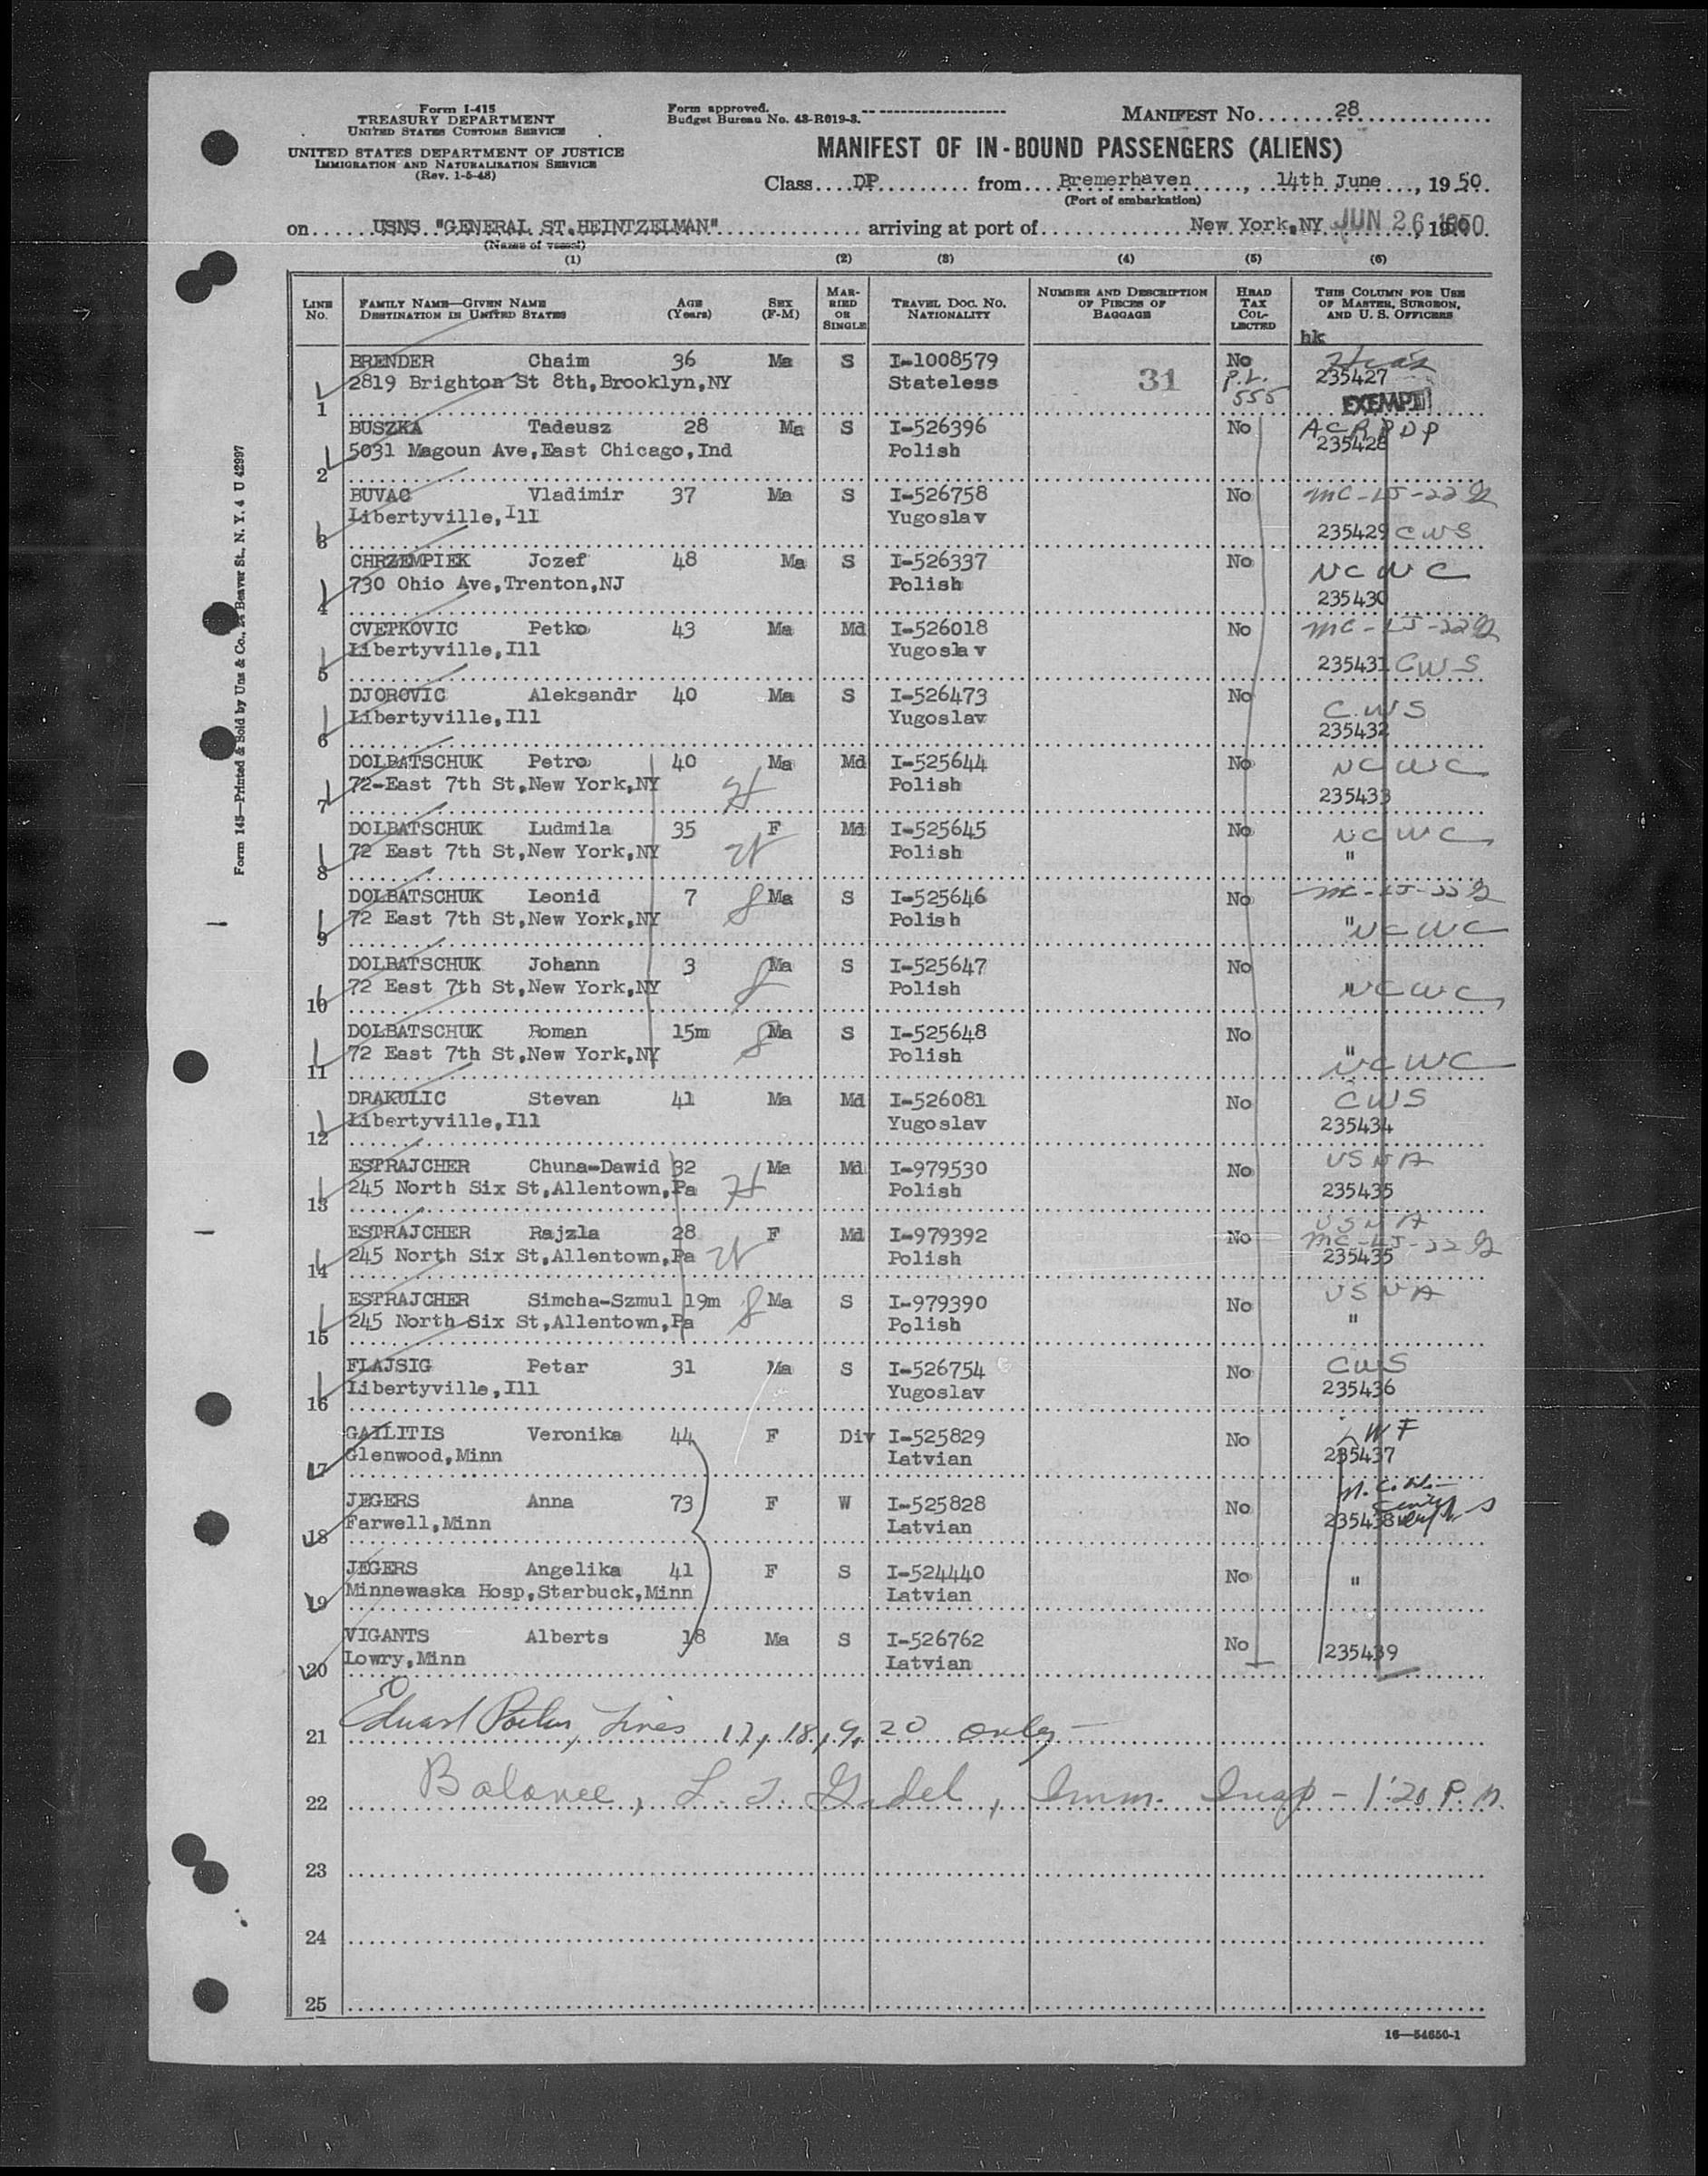 Form I-415
TREASURY DEPARTMENT
UNITED STATES CUSTOMS SERVICE
UNITED STATES DEPARTMENT OF JUSTICE
IMMIGRATION AND NATURALIZATION SERVICE
(Rev. 1-5-48)
Form approved.
Budget Bureau No. 43-R019-3.
MANIFEST No. 28
MANIFEST OF IN-BOUND PASSENGERS (ALIENS)
Class DP from Bremerhaven, 14th June, 1950.
(Port of embarkation)
on USNS "GENERAL ST.HEINTZELMAN" arriving at port of New York,NY JUN 26 1950
(Name of vessel)
(1) (2) (3) (4) (5) (6)
LINE NO. FAMILY NAME—GIVEN NAME DESTINATION IN UNITED STATES AGE (Years) SEX (F-M) MARRIED OR SINGLE TRAVEL DOC. NO. NATIONALITY NUMBER AND DESCRIPTION OF PIECES OF BAGGAGE HEAD TAX COLLECTED THIS COLUMN FOR USE OF MASTER, SURGEON, AND U. S. OFFICERS
hk
BRENDER Chaim 36 Ma S I-1008579 No
2819 Brighton St 8th,Brooklyn,NY Stateless 31 P.L. 555 235427
1 EXEMPT
BUSZKA Tadeusz 28 Ma S I-526396 No ACRPDP
5031 Magoun Ave,East Chicago,Ind Polish 235428
2
BUVAC Vladimir 37 Ma S I-526758 No MC-LJ-22
Libertyville,Ill Yugoslav
3 235429 CWS
CHRZEMPIEK Jozef 48 Ma S I-526337 No NCWC
730 Ohio Ave,Trenton,NJ Polish
4 235430
CVETKOVIC Petko 43 Ma Md I-526018 No MC-LJ-22
Libertyville,Ill Yugoslav
5 235431 CWS
DJOROVIC Aleksandr 40 Ma S I-526473 No CWS
Libertyville,Ill Yugoslav 235432
6
DOLBATSCHUK Petro 40 Ma Md I-525644 No NCWC
72-East 7th St,New York,NY Polish 235433
7
DOLBATSCHUK Ludmila 35 F Md I-525645 No NCWC
72 East 7th St,New York,NY Polish "
8
DOLBATSCHUK Leonid 7 Ma S I-525646 No MC-LJ-22
72 East 7th St,New York,NY Polish " NCWC
9
DOLBATSCHUK Johann 3 Ma S I-525647 No
72 East 7th St,New York,NY Polish " NCWC
10
DOLBATSCHUK Roman 15m Ma S I-525648 No
72 East 7th St,New York,NY Polish " NCWC
11
DRAKULIC Stevan 41 Ma Md I-526081 No CWS
Libertyville,Ill Yugoslav 235434
12
ESTRAJCHER Chuna-Dawid 32 Ma Md I-979530 No USNA
245 North Six St,Allentown,Pa Polish 235435
13
ESTRAJCHER Rajzla 28 F Md I-979392 No USNA MC-LJ-22
245 North Six St,Allentown,Pa Polish 235435
14
ESTRAJCHER Simcha-Szmul 19m Ma S I-979390 No USNA
245 North Six St,Allentown,Pa Polish "
15
FLAJSIG Petar 31 Ma S I-526754 No CWS
Libertyville,Ill Yugoslav 235436
16
GAILITIS Veronika 44 F Div I-525829 No LWF
Glenwood,Minn Latvian 235437
17
JEGERS Anna 73 F W I-525828 No
Farwell,Minn Latvian 235438
18
JEGERS Angelika 41 F S I-524440 No
Minnewaska Hosp,Starbuck,Minn Latvian "
19
VIGANTS Alberts 18 Ma S I-526762 No
Lowry,Minn Latvian 235439
20
21 Lines 17, 18, 19, 20 only
22 Balance, Imm. Insp - 1:20 P.M.
23
24
25
16—54650-1
Form 145—Printed & Sold by Unz & Co., 24 Beaver St., N. Y. 4 U 42997